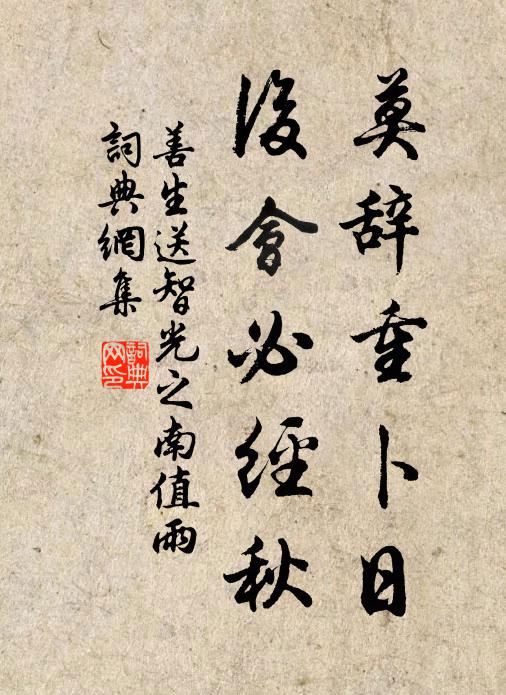 莫辞重卜日
後會必經秋
善生送智光之南值雨
詞典網集
詞典
网印